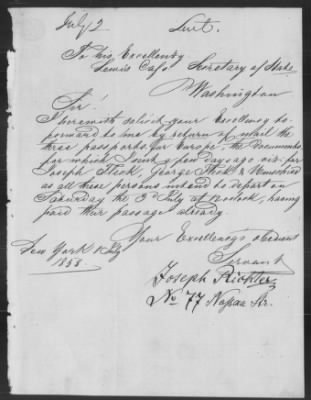 July 2 Sent.
To his Excellency
Lewis Cass Secretary of State
Washington
Sir!
I herewith solicit your Excellency to
forward to me by return of mail the
three passports for Europe, the Documents
for which I sent a few days ago viz: for
Joseph Fleck, George &
as all these persons intend to depart on
Saturday the 3d July at 12 o'clock, having
paid their passage already.
Your Excellency's obedient
Servant
New York 1 July
1858
Joseph Richter
No 77 Nassau Str.